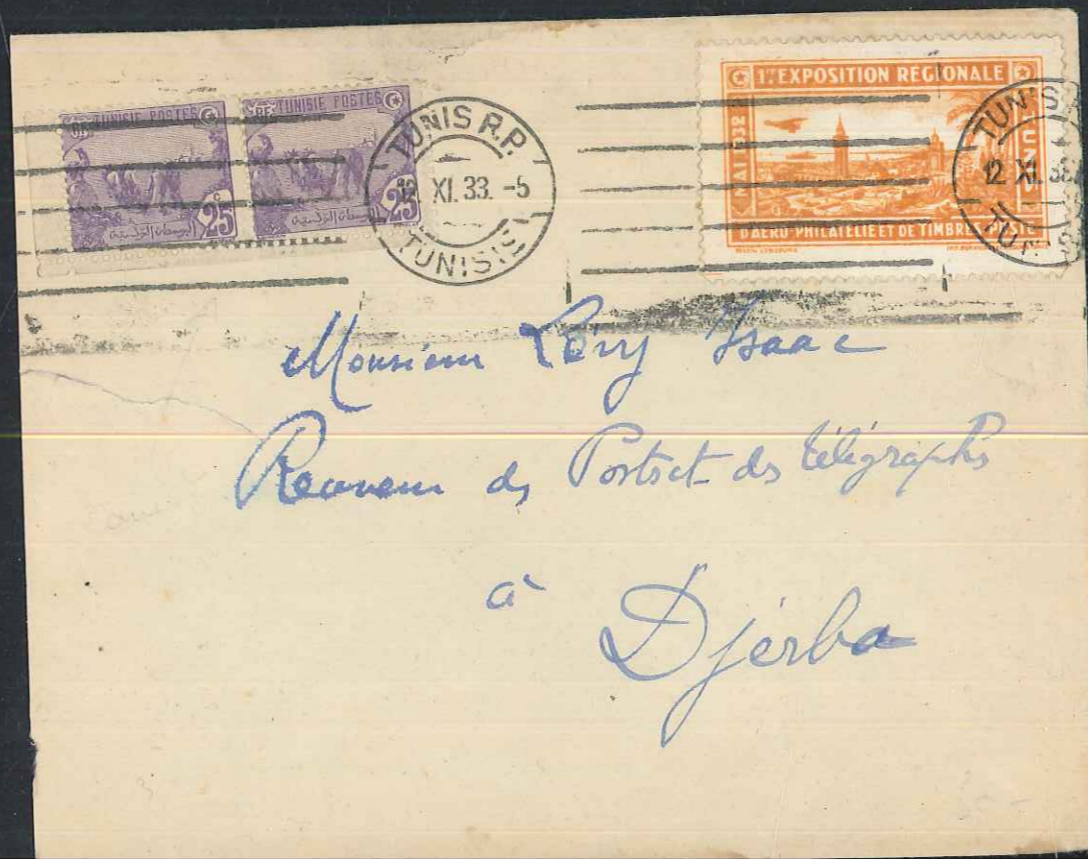 TUNISIE POSTES
25
TUNISIE POSTES
25
TUNIS R.P.
12 XI. 33. -5
TUNISIE
1re EXPOSITION RÉGIONALE
MAI 1932
D'AÉRO-PHILATÉLIE ET DE TIMBRES-POSTE
TUNIS
12 XI. 33
Monsieur Lévy Isaac
Receveur des Postes et des télégraphes
à
Djerba